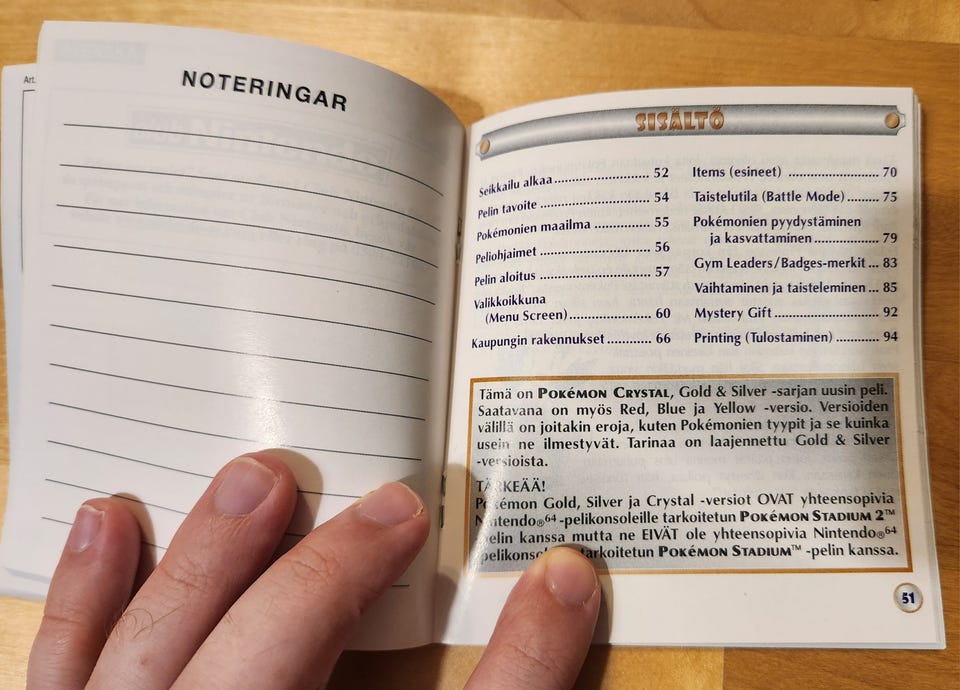 Art.
NOTERINGAR
SISÄLTÖ
Seikkailu alkaa ............................ 52
Pelin tavoite ................................ 54
Pokémonien maailma ................ 55
Peliohjaimet ................................ 56
Pelin aloitus ................................ 57
Valikkoikkuna
(Menu Screen) ........................ 60
Kaupungin rakennukset ............ 66
Items (esineet) ............................ 70
Taistelutila (Battle Mode) ........ 75
Pokémonien pyydystäminen
ja kasvattaminen .................. 79
Gym Leaders/Badges-merkit ... 83
Vaihtaminen ja taisteleminen .. 85
Mystery Gift ................................ 92
Printing (Tulostaminen) ............ 94
Tämä on POKÉMON CRYSTAL, Gold & Silver -sarjan uusin peli.
Saatavana on myös Red, Blue ja Yellow -versio. Versioiden
välillä on joitakin eroja, kuten Pokémonien tyypit ja se kuinka
usein ne ilmestyvät. Tarinaa on laajennettu Gold & Silver
-versioista.
TÄRKEÄÄ!
Pokémon Gold, Silver ja Crystal -versiot OVAT yhteensopivia
Nintendo®64 -pelikonsoleille tarkoitetun POKÉMON STADIUM 2™
-pelin kanssa mutta ne EIVÄT ole yhteensopivia Nintendo®64
tarkoitetun POKÉMON STADIUM™ -pelin kanssa.
51